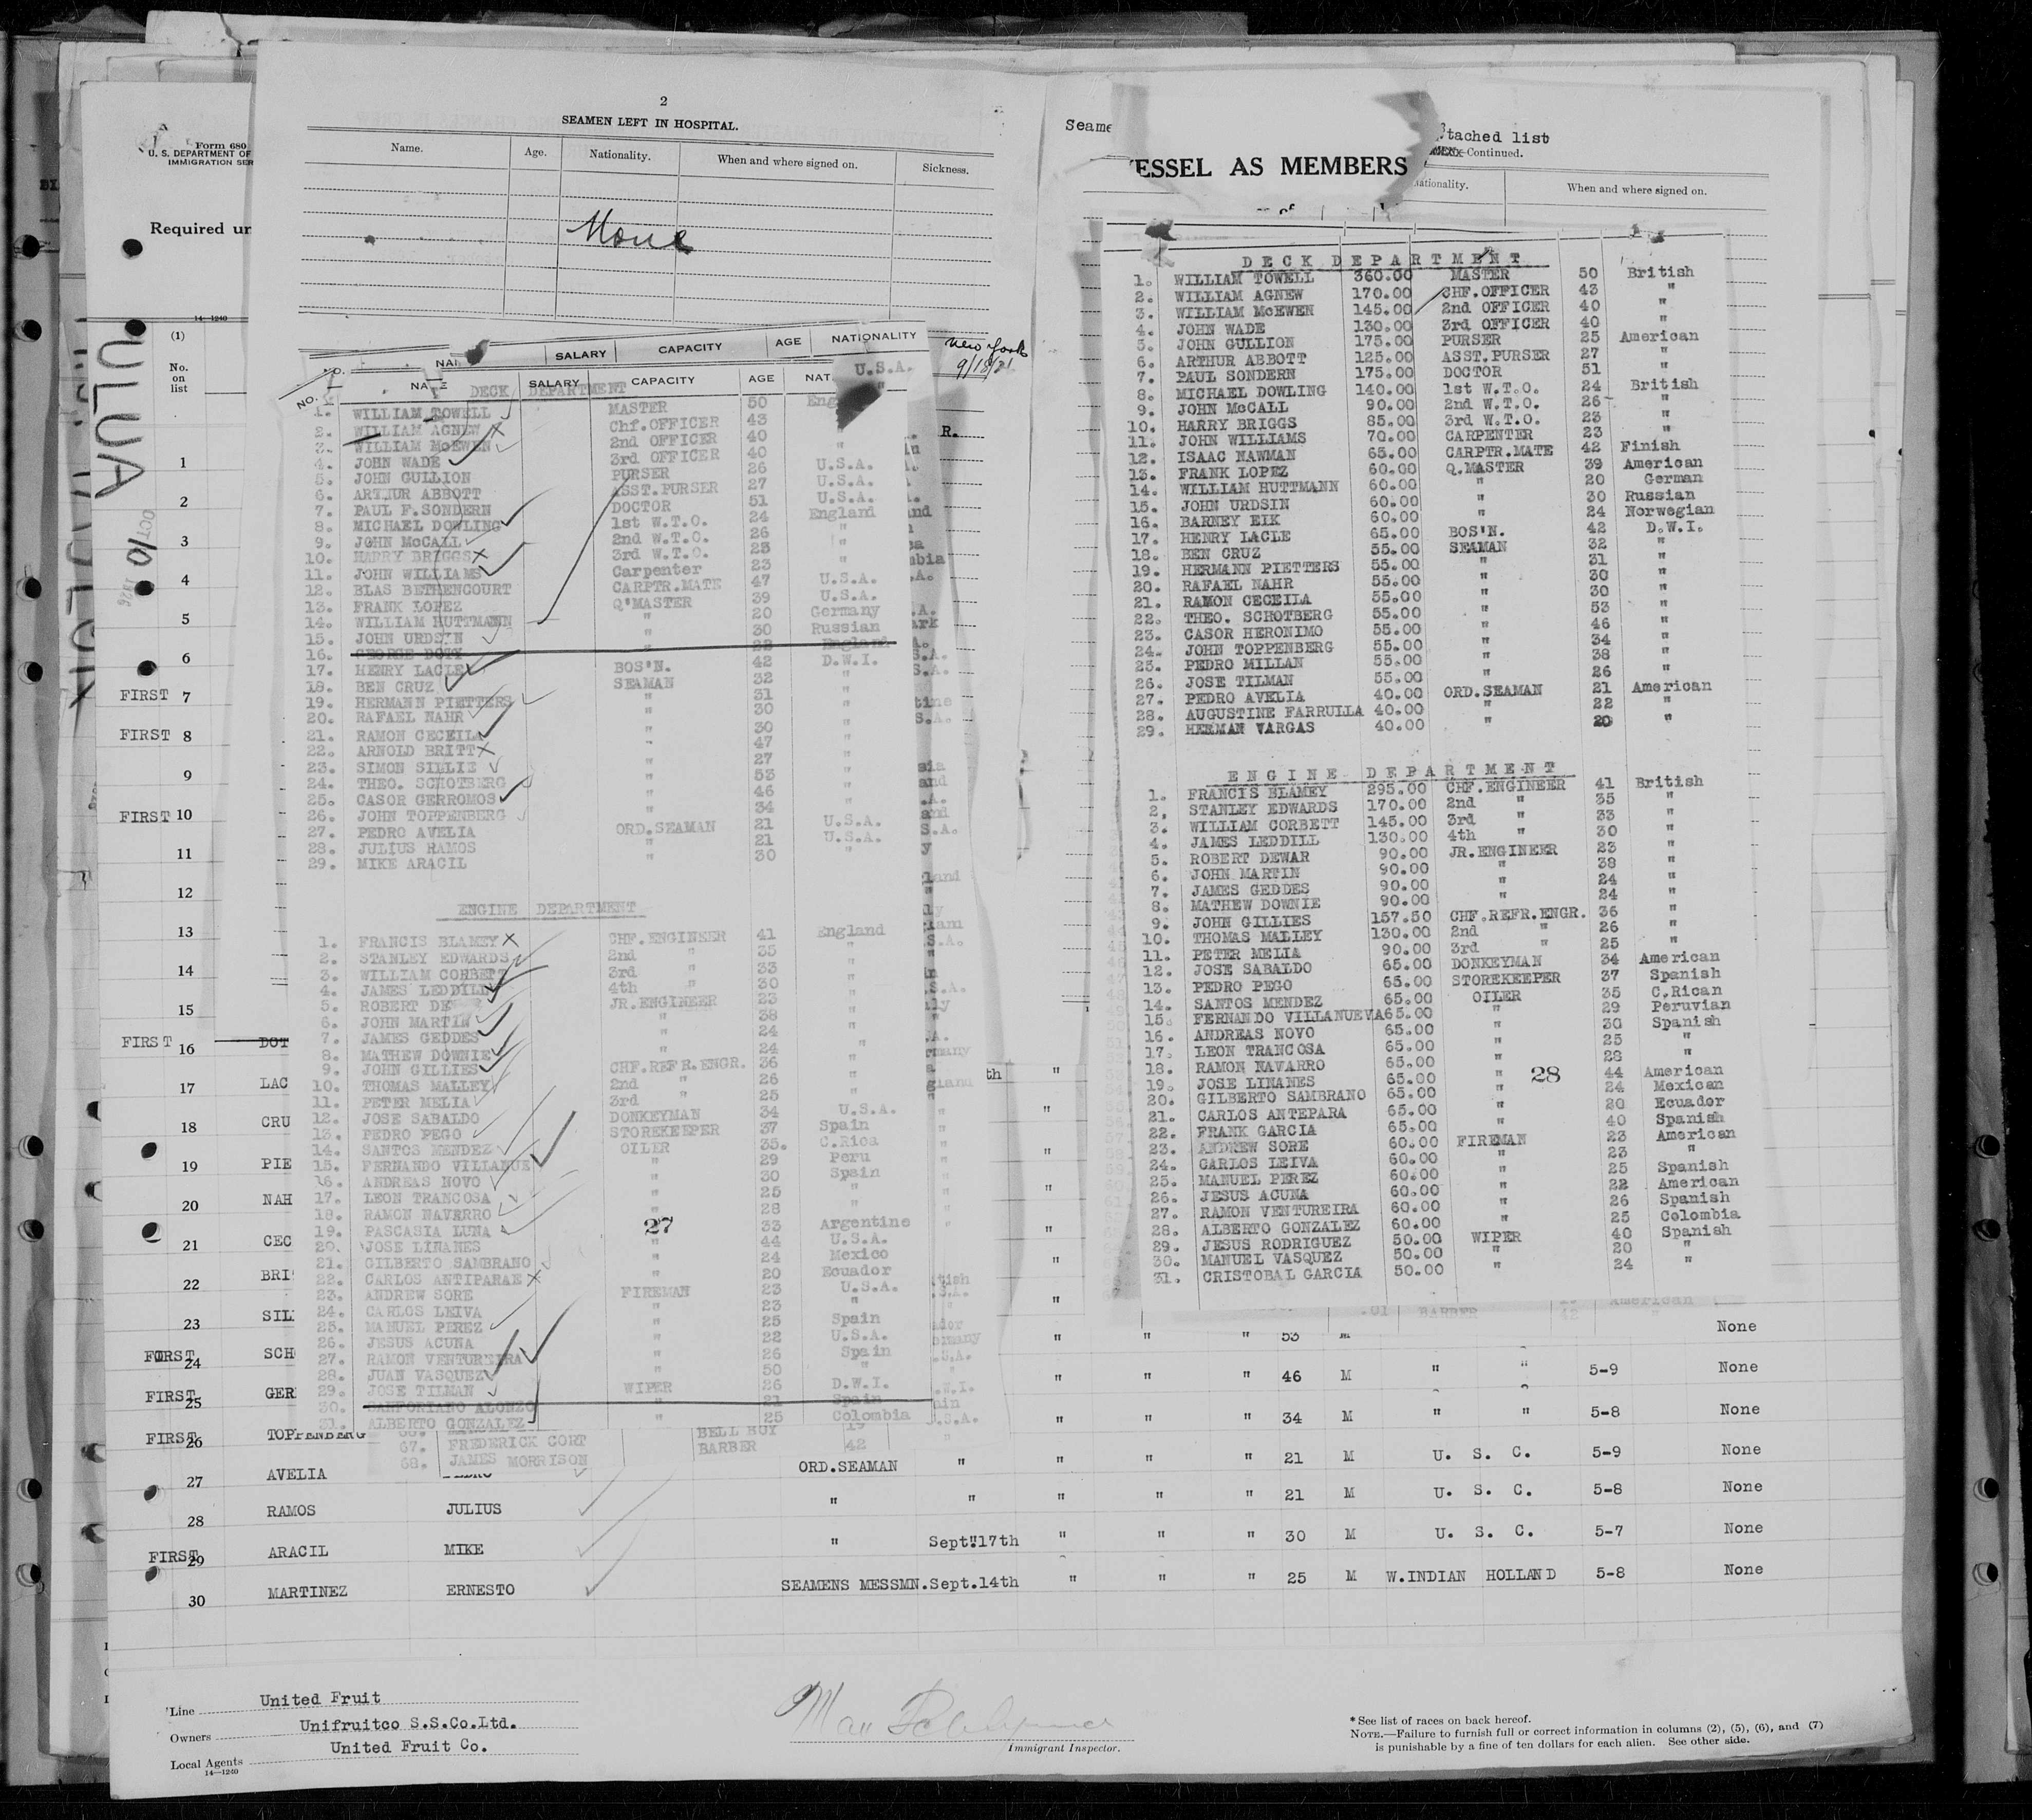 Form 680
U. S. DEPARTMENT OF
IMMIGRATION SER
Required un
14—1240
(1)
No.
on
list
ULUA
OCT 10 1926
1
2
3
4
5
6
FIRST 7
FIRST 8
9
FIRST 10
11
12
13
14
15
FIRST 16 DOT
17 LAC
18 CRU
19 PIE
20 NAH
21 CEC
22 BRI
23 SIL
FIRST 24 SCH
FIRST 25 GER
FIRST 26 TOPPENBERG
2
SEAMEN LEFT IN HOSPITAL.
Name. Age. Nationality. When and where signed on. Sickness.
None
New York
9/18/21
NO. NAME SALARY CAPACITY AGE NATIONALITY
U.S.A.
NO. NAME SALARY CAPACITY AGE NAT
DECK DEPARTMENT
1. WILLIAM TOWELL MASTER 50 Eng
2. WILLIAM AGNEW Chf.OFFICER 43 "
3. WILLIAM McEWEN 2nd OFFICER 40 "
4. JOHN WADE 3rd OFFICER 40 "
5. JOHN GULLION PURSER 26 U.S.A.
6. ARTHUR ABBOTT ASST.PURSER 27 U.S.A.
7. PAUL F.SONDERN DOCTOR 51 U.S.A.
8. MICHAEL DOWLING 1st W.T.O. 24 England
9. JOHN McCALL 2nd W.T.O. 26 "
10. HARRY BRIGGS 3rd W.T.O. 23 "
11. JOHN WILLIAMS Carpenter 23 "
12. BLAS BETHENCOURT CARPTR.MATE 47 U.S.A.
13. FRANK LOPEZ Q'MASTER 39 U.S.A.
14. WILLIAM HUTTMANN " 20 Germany
15. JOHN URDSIN " 30 Russian
16. GEORGE DOTY " 22 England
17. HENRY LACLE BOS'N. 42 D.W.I.
18. BEN CRUZ SEAMAN 32 "
19. HERMANN PIETTERS " 31 "
20. RAFAEL NAHR " 30 "
21. RAMON CECEILA " 30 "
22. ARNOLD BRITT " 47 "
23. SIMON SILLIE " 27 "
24. THEO. SCHOTBERG " 53 "
25. CASOR GERROMOS " 46 "
26. JOHN TOPPENBERG " 34 "
27. PEDRO AVELIA ORD.SEAMAN 21 U.S.A.
28. JULIUS RAMOS " 21 U.S.A.
29. MIKE ARACIL " 30 "
ENGINE DEPARTMENT
1. FRANCIS BLAMEY CHF.ENGINEER 41 England
2. STANLEY EDWARDS 2nd " 35 "
3. WILLIAM CORBETT 3rd " 33 "
4. JAMES LEDDILL 4th " 30 "
5. ROBERT DE JR.ENGINEER 23 "
6. JOHN MARTIN " 38 "
7. JAMES GEDDES " 24 "
8. MATHEW DOWNIE " 24 "
9. JOHN GILLIES CHF.REFR.ENGR. 36 "
10. THOMAS MALLEY 2nd " 26 "
11. PETER MELIA 3rd " 25 "
12. JOSE SABALDO DONKEYMAN 34 U.S.A.
13. PEDRO PEGO STOREKEEPER 37 Spain
14. SANTOS MENDEZ OILER 35. C.Rica
15. FERNANDO VILLANUE " 29 Peru
16. ANDREAS NOVO " 30 Spain
17. LEON TRANCOSA " 25 "
18. RAMON NAVERRO " 28 "
19. PASCASIA LUNA 27 33 Argentine
20. JOSE LINANES " 44 U.S.A.
21. GILBERTO SAMBRANO " 24 Mexico
22. CARLOS ANTIPARAE " 20 Ecuador
23. ANDREW SORE FIREMAN 23 U.S.A.
24. CARLOS LEIVA " 23 "
25. MANUEL PEREZ " 25 Spain
26. JESUS ACUNA " 22 U.S.A.
27. RAMON VENTUREIRA " 26 Spain
28. JUAN VASQUEZ " 50 "
29. JOSE TILMAN WIPER 26 D.W.I.
30. SANFORIANO ALONZO " 21 Spain
31. ALBERTO GONZALEZ " 25 Colombia
BELL BOY 19
67. FREDERICK CORT BARBER 42
68. JAMES MORRISON
Seame
ttached list
Continued.
ESSEL AS MEMBERS
Nationality. When and where signed on.
DECK DEPARTMENT
1. WILLIAM TOWELL 360.00 MASTER 50 British
2. WILLIAM AGNEW 170.00 CHF.OFFICER 43 "
3. WILLIAM McEWEN 145.00 2nd OFFICER 40 "
4. JOHN WADE 130.00 3rd OFFICER 40 "
5. JOHN GULLION 175.00 PURSER 25 American
6. ARTHUR ABBOTT 125.00 ASST.PURSER 27 "
7. PAUL SONDERN 175.00 DOCTOR 51 "
8. MICHAEL DOWLING 140.00 1st W.T.O. 24 British
9. JOHN McCALL 90.00 2nd W.T.O. 26 "
10. HARRY BRIGGS 85.00 3rd W.T.O. 23 "
11. JOHN WILLIAMS 70.00 CARPENTER 23 "
12. ISAAC NAWMAN 65.00 CARPTR.MATE 42 Finish
13. FRANK LOPEZ 60.00 Q.MASTER 39 American
14. WILLIAM HUTTMANN 60.00 " 20 German
15. JOHN URDSIN 60.00 " 30 Russian
16. BARNEY EIK 60.00 " 24 Norwegian
17. HENRY LACLE 65.00 BOS'N. 42 D.W.I.
18. BEN CRUZ 55.00 SEAMAN 32 "
19. HERMANN PIETTERS 55.00 " 31 "
20. RAFAEL NAHR 55.00 " 30 "
21. RAMON CECEILA 55.00 " 30 "
22. THEO. SCHOTBERG 55.00 " 53 "
23. CASOR HERONIMO 55.00 " 46 "
24. JOHN TOPPENBERG 55.00 " 34 "
25. PEDRO MILLAN 55.00 " 38 "
26. JOSE TILMAN 55.00 " 26 "
27. PEDRO AVELIA 40.00 ORD.SEAMAN 21 American
28. AUGUSTINE FARRULLA 40.00 " 22 "
29. HERMAN VARGAS 40.00 " 20 "
ENGINE DEPARTMENT
1. FRANCIS BLAMEY 295.00 CHF.ENGINEER 41 British
2, STANLEY EDWARDS 170.00 2nd " 35 "
3. WILLIAM CORBETT 145.00 3rd " 33 "
4. JAMES LEDDILL 130.00 4th " 30 "
5. ROBERT DEWAR 90.00 JR.ENGINEER 23 "
6. JOHN MARTIN 90.00 " 38 "
7. JAMES GEDDES 90.00 " 24 "
8. MATHEW DOWNIE 90.00 " 24 "
9. JOHN GILLIES 157.50 CHF.REFR.ENGR. 36 "
10. THOMAS MALLEY 130.00 2nd " 26 "
11. PETER MELIA 90.00 3rd " 25 "
12. JOSE SABALDO 65.00 DONKEYMAN 34 American
13. PEDRO PEGO 65.00 STOREKEEPER 37 Spanish
14. SANTOS MENDEZ 65.00 OILER 35 C.Rican
15. FERNANDO VILLANUEVA 65.00 " 29 Peruvian
16. ANDREAS NOVO 65.00 " 30 Spanish
17. LEON TRANCOSA 65.00 " 25 "
18. RAMON NAVARRO 65.00 " 28 "
19. JOSE LINANES 65.00 " 28 44 American
20. GILBERTO SAMBRANO 65.00 " 24 Mexican
21. CARLOS ANTEPARA 65.00 " 20 Ecuador
22. FRANK GARCIA 65.00 " 40 Spanish
23. ANDREW SORE 60.00 FIREMAN 23 American
24. CARLOS LEIVA 60.00 " 23 "
25. MANUEL PEREZ 60.00 " 25 Spanish
26. JESUS ACUNA 60.00 " 22 American
27. RAMON VENTUREIRA 60.00 " 26 Spanish
28. ALBERTO GONZALEZ 60.00 " 25 Colombia
29. JESUS RODRIGUEZ 50.00 WIPER 40 Spanish
30. MANUEL VASQUEZ 50.00 " 20 "
31. CRISTOBAL GARCIA 50.00 " 24 "
.01 BARBER 42 American
" " " 53 M None
" " " 46 M " " 5-9 None
" " " 34 M " " 5-8 None
27 AVELIA PEDRO ORD.SEAMAN " " " " 21 M U. S. C. 5-9 None
28 RAMOS JULIUS " " " " " 21 M U. S. C. 5-8 None
FIRST 29 ARACIL MIKE " Sept.17th " " " 30 M U. S. C. 5-7 None
30 MARTINEZ ERNESTO SEAMENS MESSMN. Sept.14th " " " 25 M W.INDIAN HOLLAND 5-8 None
Line United Fruit
Owners Unifruitco S.S.Co.Ltd.
Local Agents United Fruit Co.
14—1240
Immigrant Inspector.
*See list of races on back hereof.
NOTE.—Failure to furnish full or correct information in columns (2), (5), (6), and (7)
is punishable by a fine of ten dollars for each alien. See other side.